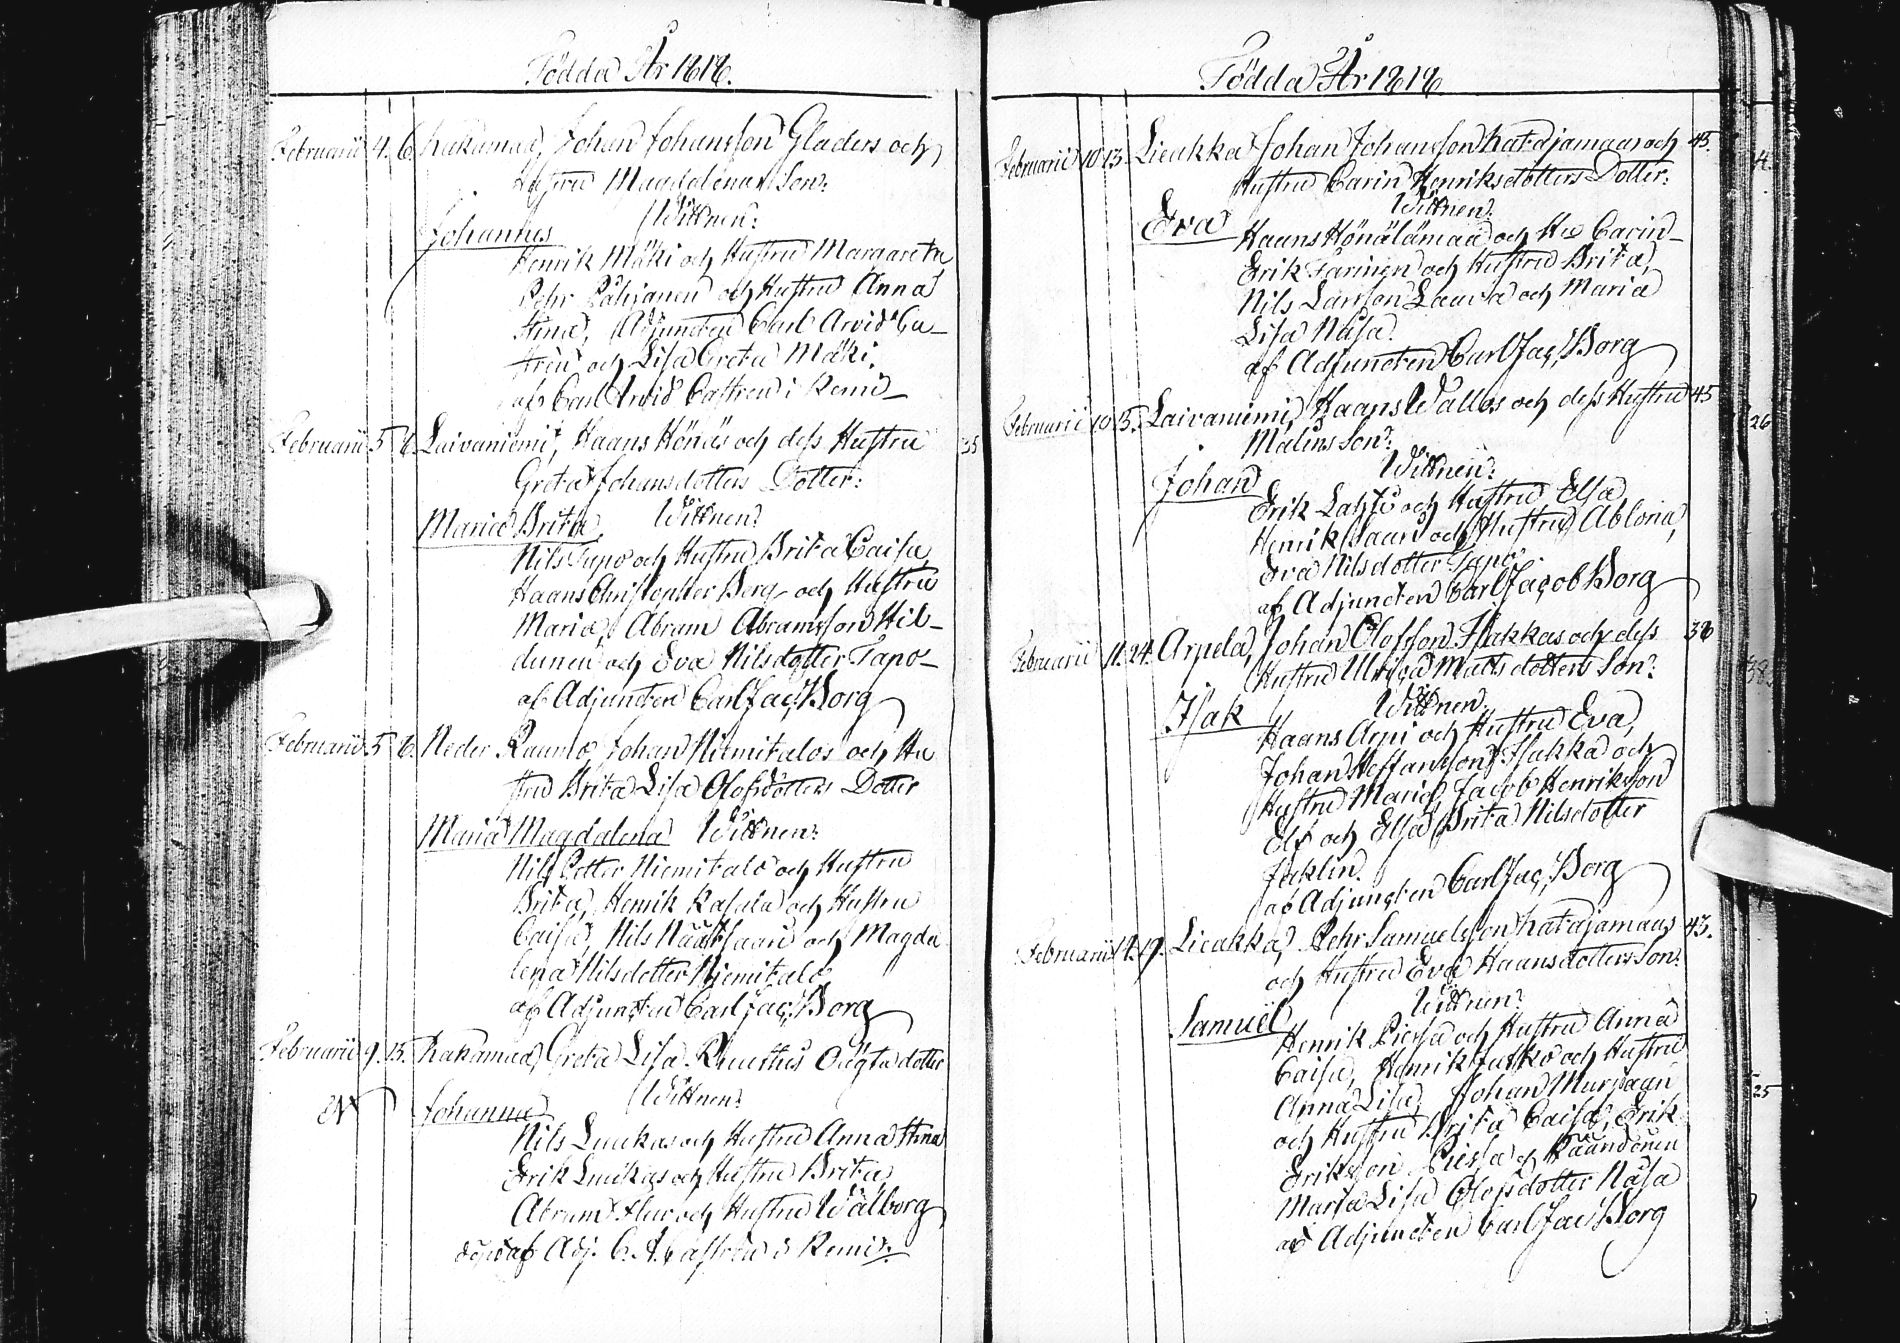 Födda År 1818.
Februarii 4. 6. Kakamaa, Johan Johansson Gladers och
Hustru Magdalenas Son:
Wittnen:
Johannes
Henrik Mäki och Hustru Margareta
Pehr Pahjanen och Hustru Anna
Stina, Adjuncten Carl Arvid Ca-
strén och Lisa Greta Mäki.
af Carl Arvid Castren i Kemi-
Februarii 5 6. Laivaniemi, Haans Hönäs och dess Hustru 35
Greta Johansdotters Dotter:
Maria Brita Wittnen:
Nils Tapo och Hustru Brita Caisa,
Haans Christopher Berg och Hustru
Maria, Abram Abramsson Hil-
dunen och Eva Nilsdotter Tapo-
af Adjuncten Carl Jac: Borg
Februarii 5 6. Neder Raumo, Johan Niemitalos och Hu
stru Brita Lisa Olofsdotters Dotter
Maria Magdalena Wittnen:
Nils Petter Niemitalo och Hustru
Brita, Henrik Kasala och Hustru
Caisa, Nils Näätsaari och Magda
lena Nilsdotter Niemitalo
af Adjuncten Carl Jac: Borg
Februarii 9. 15. Kakamaa, Greta Lisa Oägta dotter
Wittnen:
Johanna
Nils Luukas och Hustru Anna Stina
Erik Luukas och Hustru Brita
Abram och Hustru Wålborg
döpt af Adj. C. A. Castrén i Kemi.
Födda År 1818
Februarii 10 13. Lieakka Johan Johansson Katajamaas och 45.
Hustru Carin Henriksdotters Dotter:
Wittnen:
Eva
Haans Hönälämaa och Hu Carin-
Erik Farinen och Hustru Brita,
Nils Larsson Laurea och Maria
Lisa Näsa.
af Adjuncten Carl Jac: Borg
Februarii 10 15. Laivaniemi, Haans Wallos och dess Hustru 45
Malins Son:
Wittnen:
Johan
Erik Lahti och Hustru Elsa
Henrik Saari och Hustru Ablona,
Eva Nilsdotter Tapo-
af Adjuncten Carl Jacob Borg
Februarii 11. 24. Arpela, Johan Olofsson Isakkas och dess 38
Hustru Ulrica Matts dotters Son:
Wittnen
Isak
Haans Arpi och Hustru Eva,
Johan Steffansson Isakka och
Hustru Maria, Jacob Henriksson
Elf och Elsa Brita Nilsdotter
Jaklin.
af Adjuncten Carl Jac: Borg
Februarii 14. 19. Lieakka, Pehr Samuelsson Katajamaas 43.
och Hustru Eva Haansdotters Son:
Wittnen:
Samuel
Henrik Piesa och Hustru Anna
Caisa, Henrik och Hustru
Anna Lisa, Johan
och Hustru Brita Caisa, Erik
Eriksson Piesa och
Maria Lisa Olofsdotter Näsa
af Adjuncten Carl Jac: Borg
4.
26
38
25